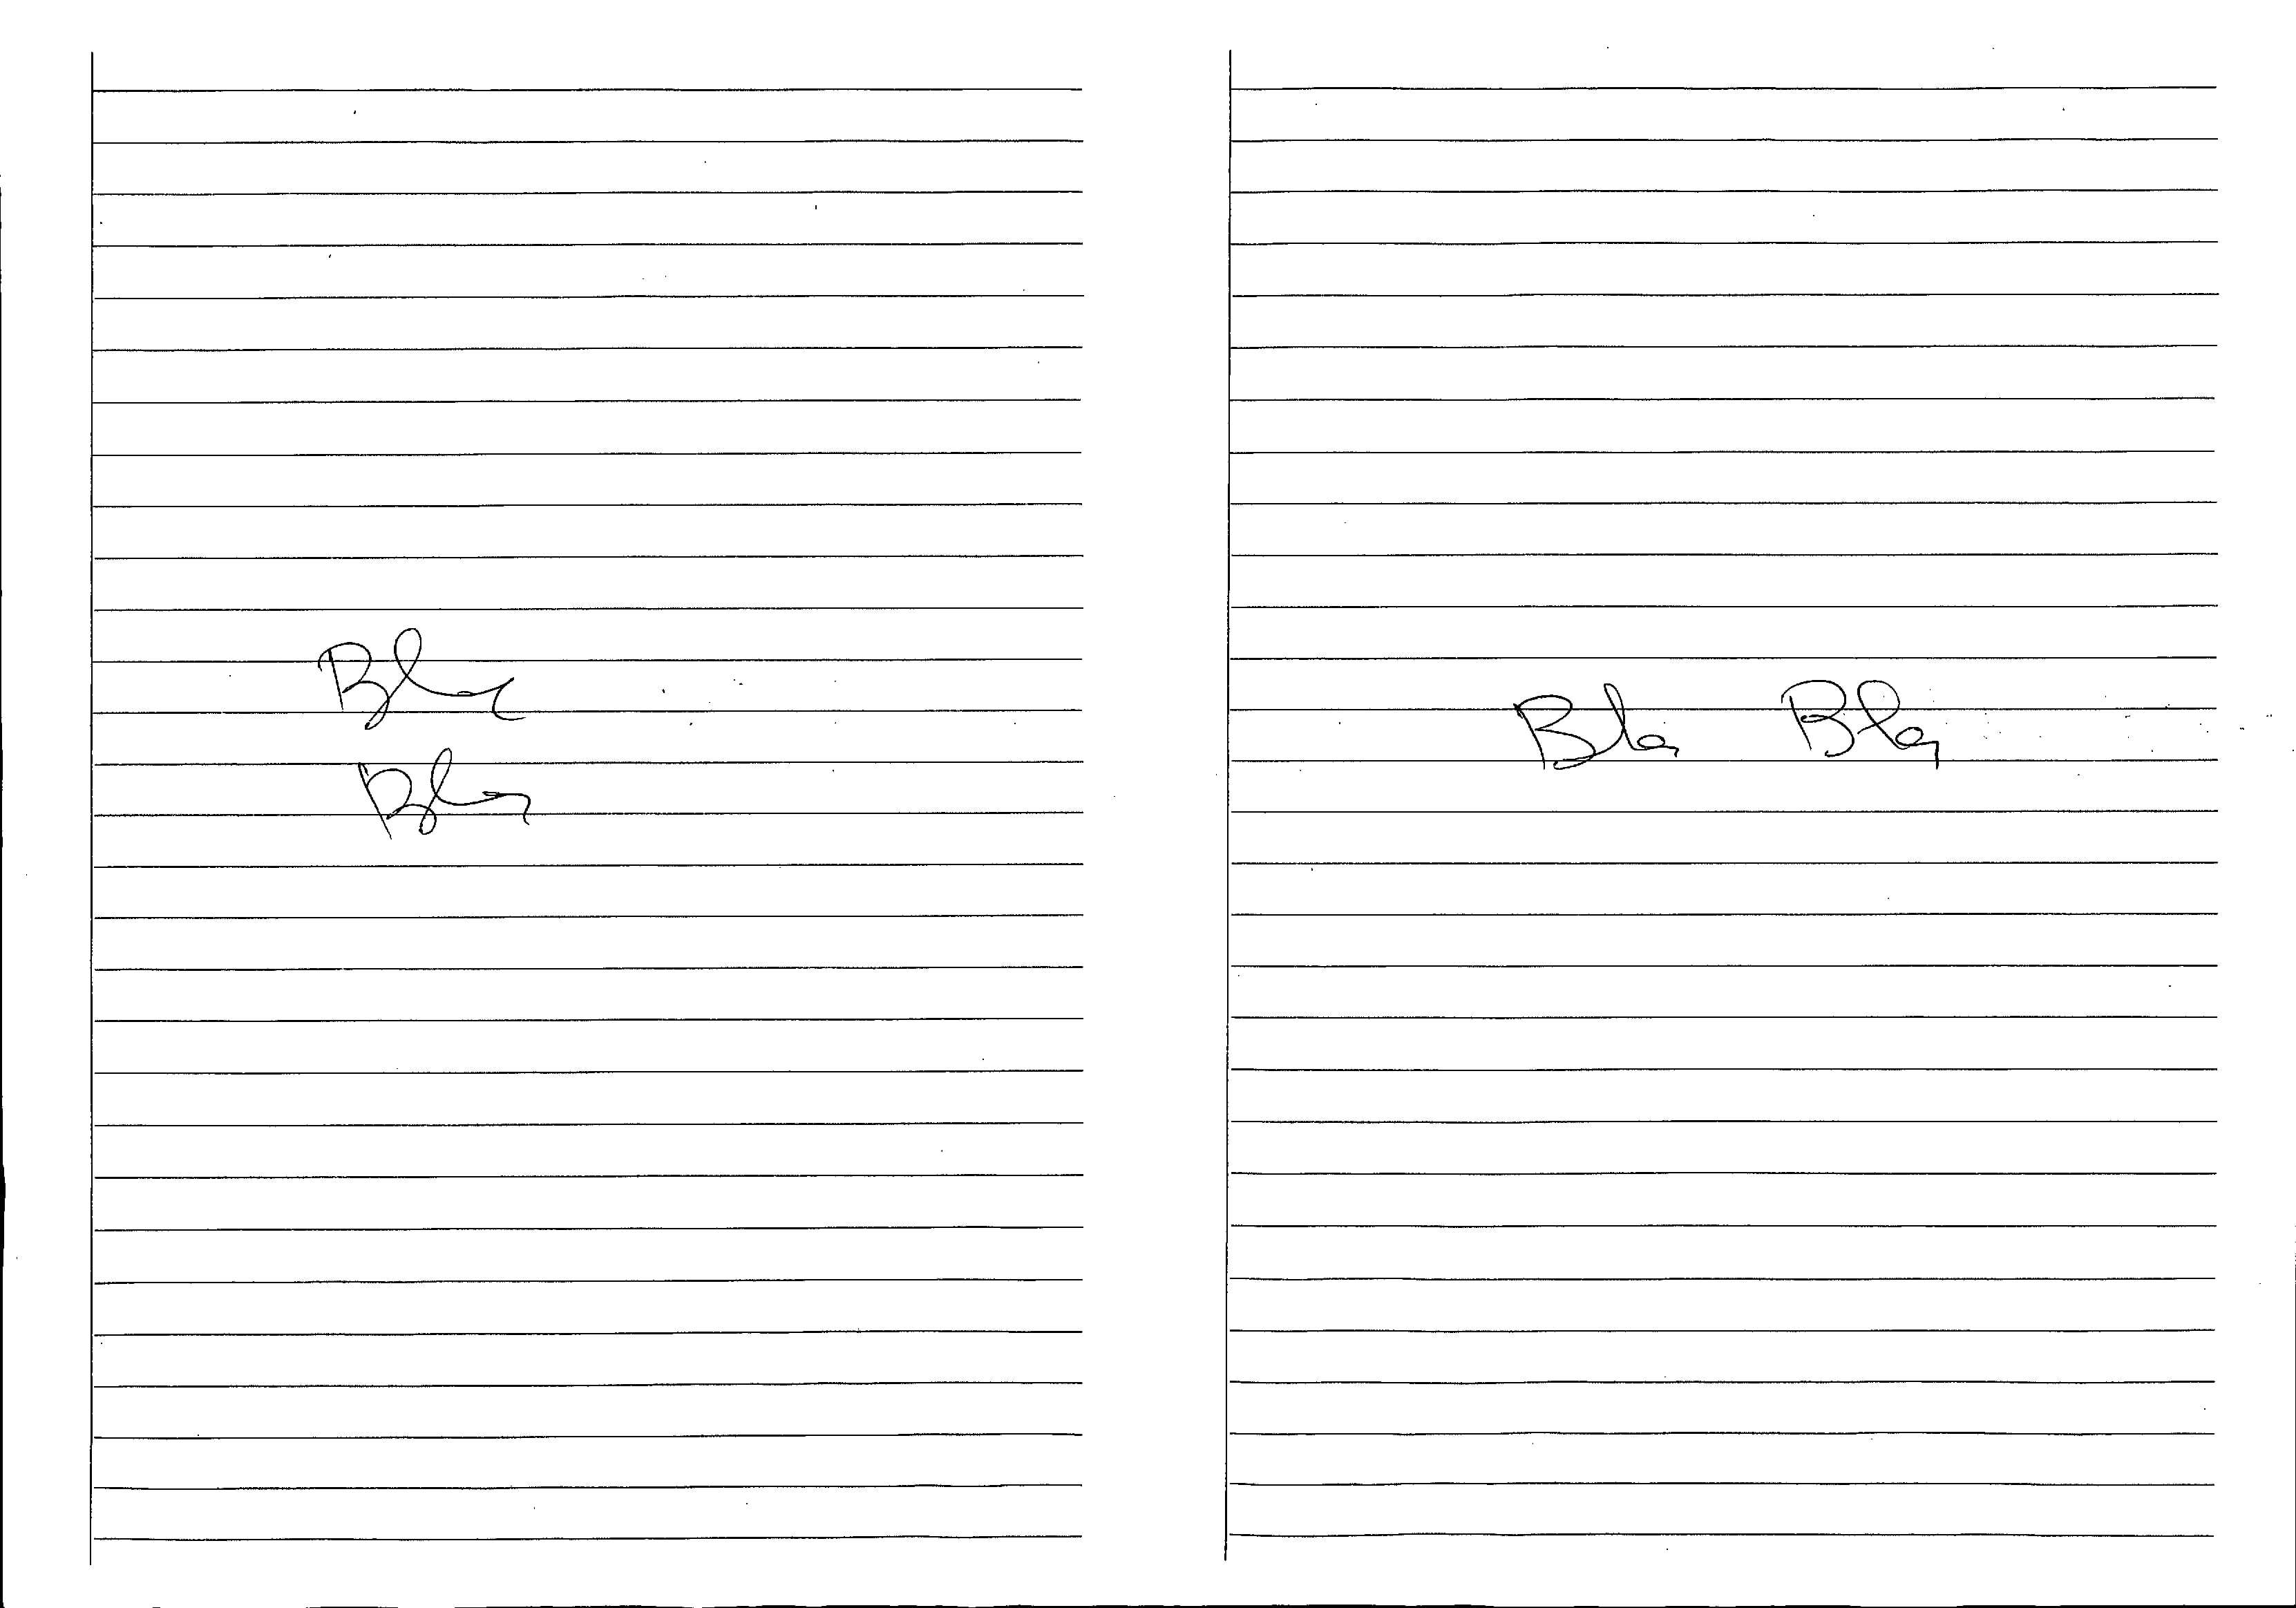 Bla
Bla
Bla Bla